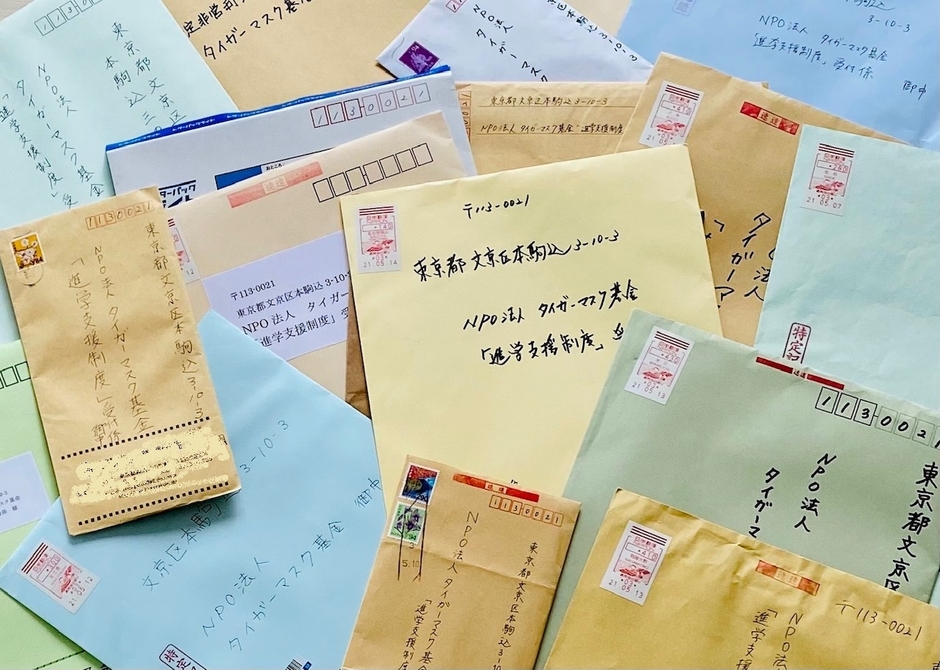 東京都文京区
本駒込三
NPO法人
タイガーマスク基金
「進学支援制度」受
定非営利
タイガーマスク基金
NPO法人
タイガーマスク
3-10-3
3-10-3
NPO法人 タイガーマスク基金
「進学支援制度」受付係
御中
1130021
ターパック
東京都文京区本駒込3-10-3
NPO法人タイガーマスク基金"進学支援制度
速達
日本郵便
速達
タイガーマ
日本郵便
21.05.07
特定記
1130021
東京都文京区本駒込3-10-3
NPO法人タイガーマスク基金
「進学支援制度」受付係
御中
速達
〒113-0021
東京都文京区本駒込3-10-
NPO法人 タイガー
「進学支援制度」受
日本郵便
21.05.14
〒113-0021
東京都文京区本駒込3-10-3
NPO法人 タイガーマスク基金
「進学支援制度」
日本郵便
21.05.13
速達
1130021
東京都文京区
NPO法人
タイガーマ
3-10-3
文京区本駒
NPO法人
タイガーマスク基金
御中
特定
速達
1130021
東京都文京区本駒込3-10-3
NPO法人タイガーマスク基金
「進学支援制度
5.10
日本郵便
21.05.13
速達
〒113-0021
NPO法人
「進学支援